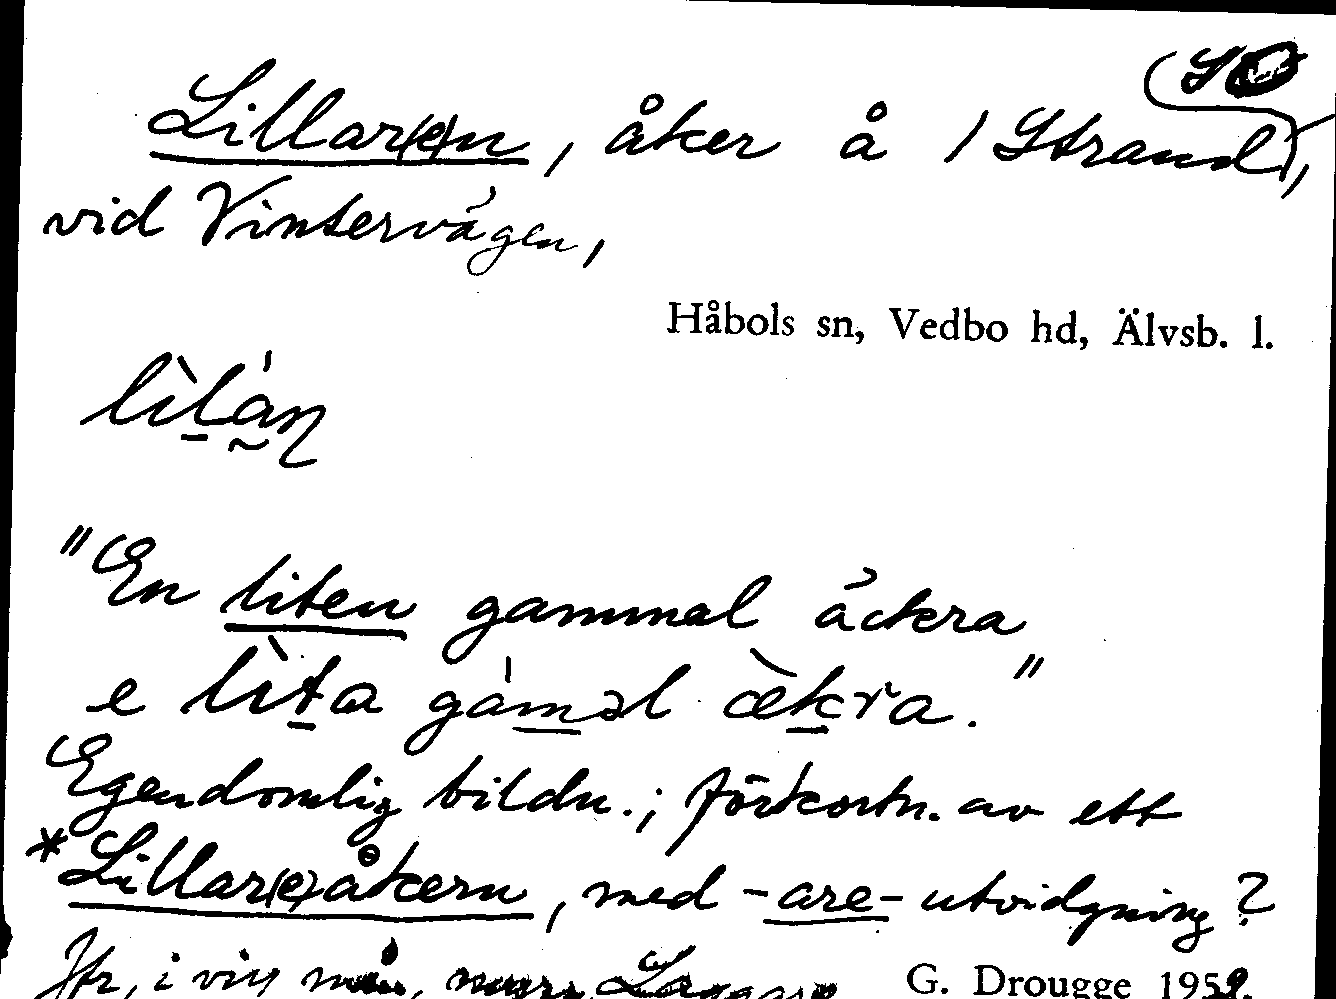 SO
Lillar(e)n, åker å 1 Strand,
vid Vintervägen,
Håbols sn, Vedbo hd, Älvsb. l.
"En liten gammal åckra
e lìta gáməl æ̀kra."
Egendomlig bildn.; förkortn. av ett
*Lillar(e)åkern, med -are-utvidgning?
Jfr, i viss mån,
G. Drougge 1952.